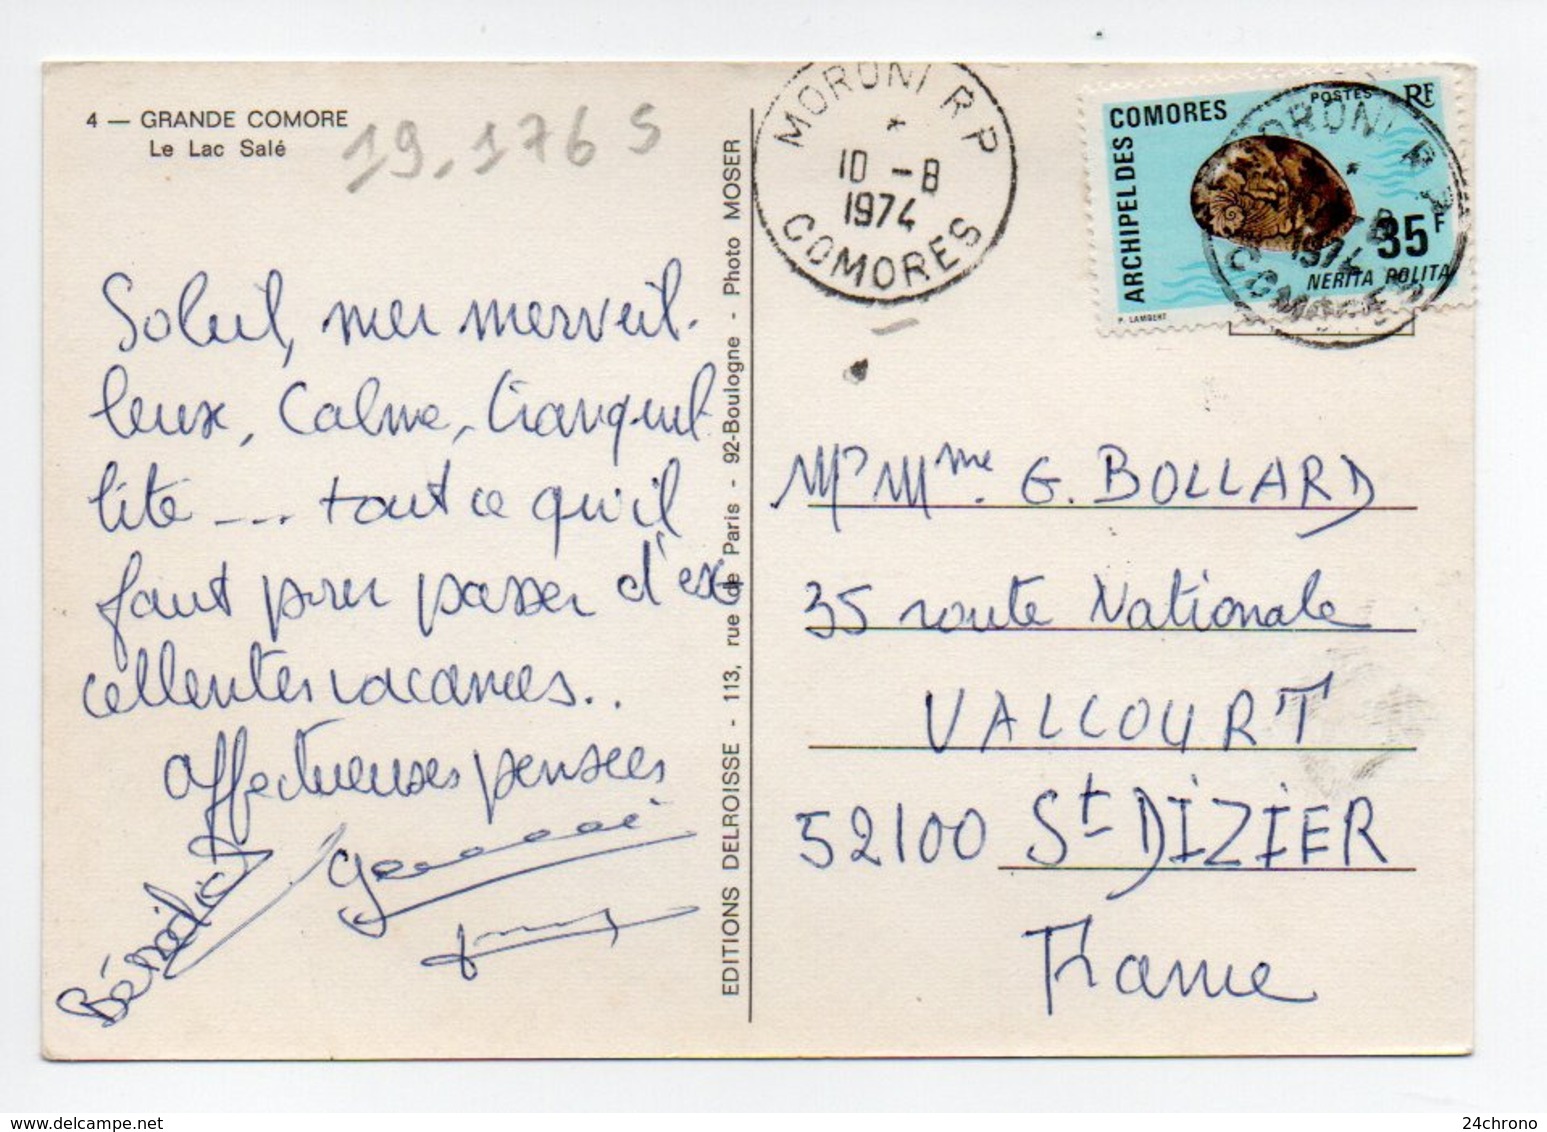 4 — GRANDE COMORE
Le Lac Salé
19.176 S
Soleil, mer merveil-
leux, Calme, tranquil
lité --.. tout ce qu'il
faut pour passer d'ex
cellentes vacances..
affectueuses pensées
Bénédict
EDITIONS DELROISSE - 113, rue de Paris - 92-Boulogne - Photo MOSER
MORONI R P
*
10 - 8
1974
COMORES
ARCHIPEL DES
COMORES
POSTES
RF
35F
NERITA POLITA
P. LAMBERT
MORONI R P
*
1974
COMORES
Mr Mme. G. BOLLARD
35 route Nationale
VALCOURT
52100 St-DIZIER
France
24chrono